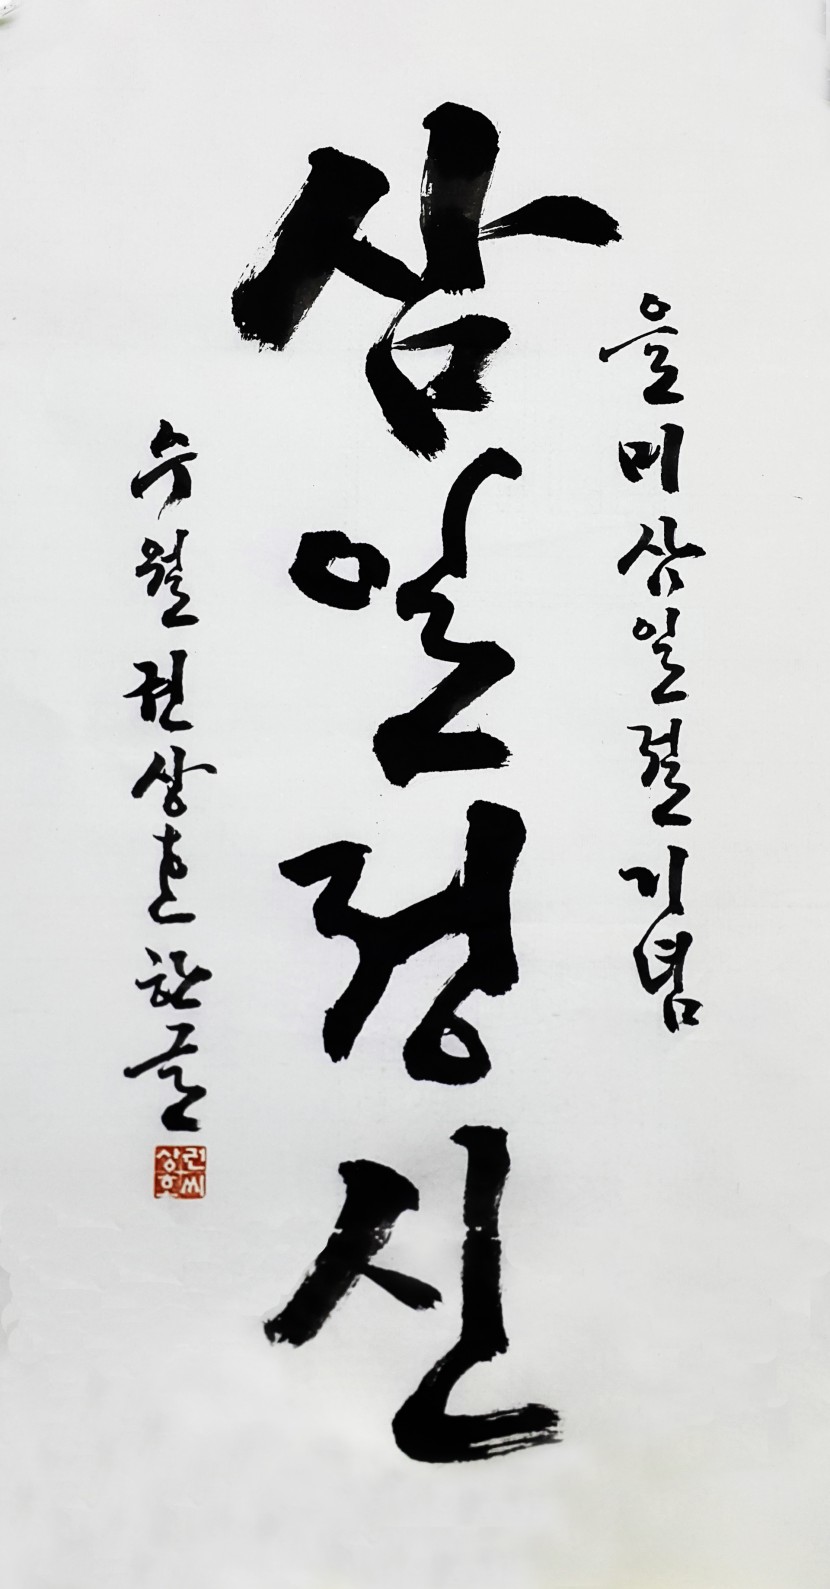 을미삼일절기념
삼일정신
수월권상호한글
권씨
상호